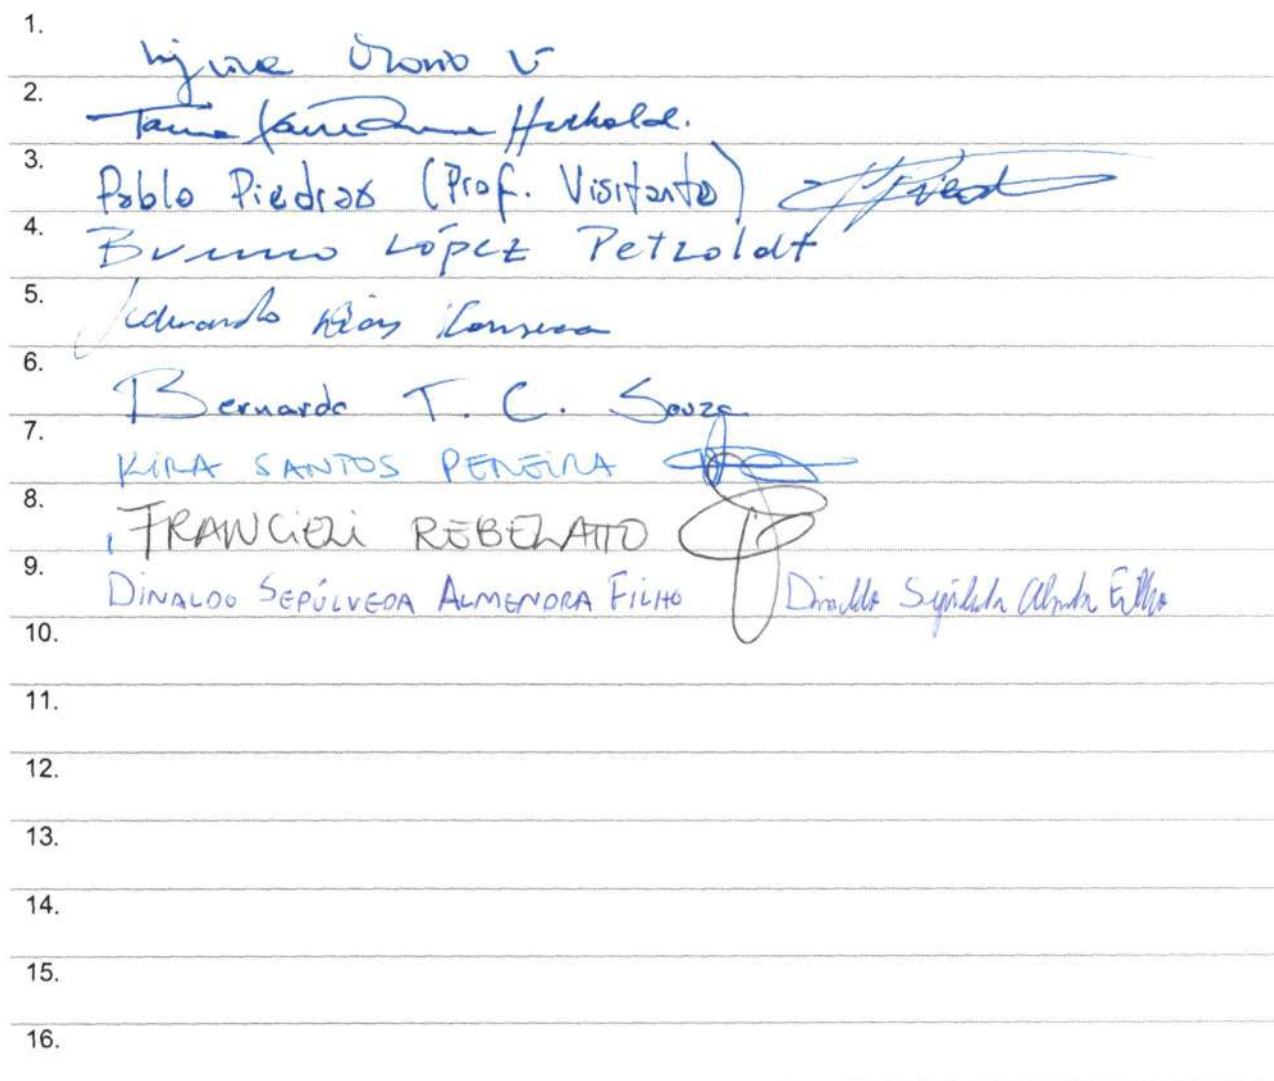 1.
2.
3. Pablo Piedras (Prof. Visitante)
4. Bruno López Petzoldt
5. Eduardo Dias Fonseca
6. Bernardo T. C. Souza
7. KIRA SANTOS PEREIRA
8. FRANCIELI REBELATTO
9. DINALDO SEPÚLVEDA ALMENDRA FILHO Dinaldo Sepúlveda Almendra Filho
10.
11.
12.
13.
14.
15.
16.